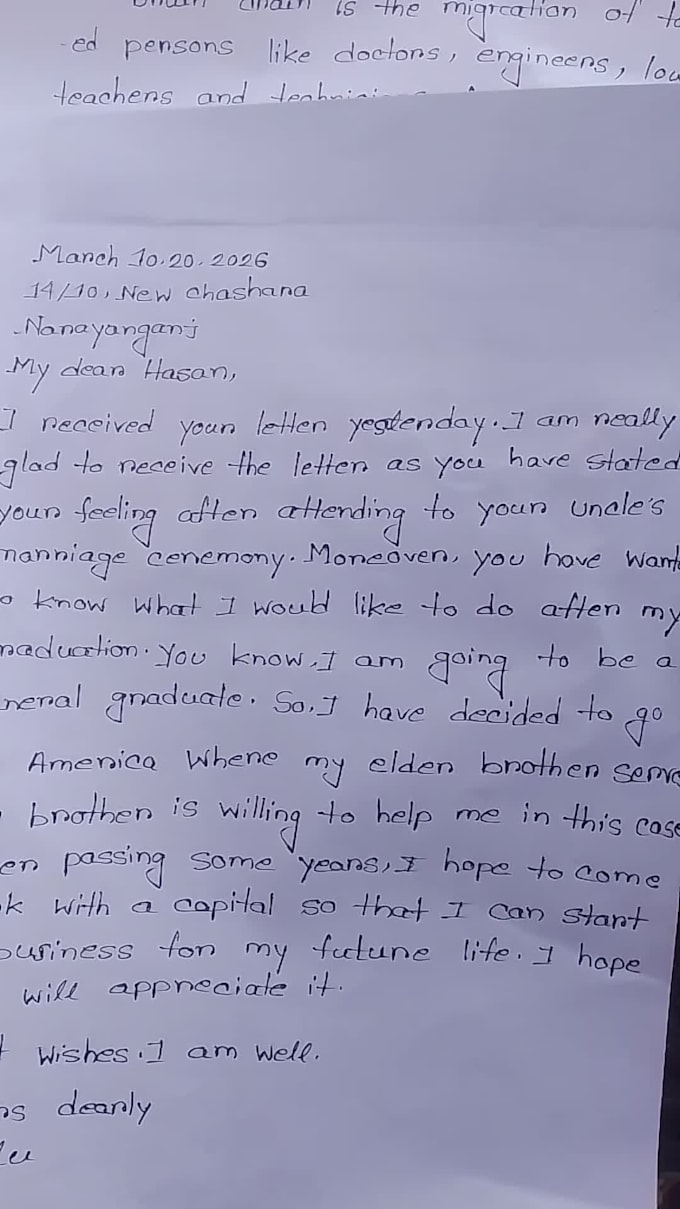 is the migration of
ed persons like doctors, engineers,
teachers and
March 10.20.2026
14/10, New chashara
Narayanganj
My dear Hasan,
I received your letter yesterday. I am really
glad to receive the letter as you have stated
your feeling after attending to your uncle's
marriage ceremony. Moreover, you have want
o know what I would like to do after my
raduation. You know, I am going to be a
neral graduate. So, I have decided to go
America where my elder brother serve
brother is willing to help me in this case
er passing some years, I hope to come
k with a capital so that I can start
business for my future life. I hope
will appreciate it.
t wishes. I am well.
rs dearly